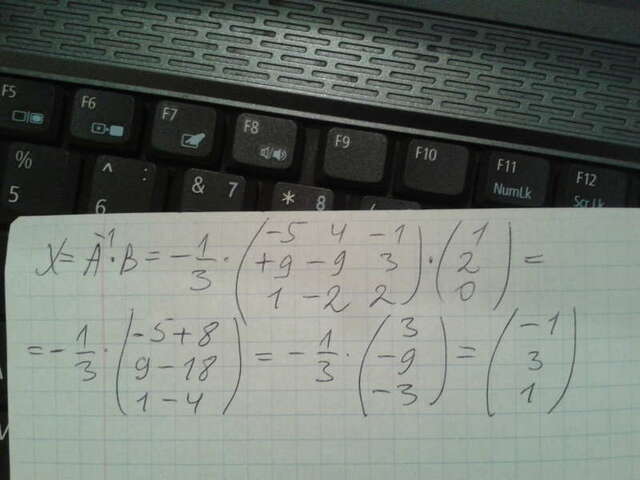 F5 F6 F7 F8 F9 F10 F11 F12
NumLk Scr Lk
% 5 ^ : 6 & 7 * 8 (
X = A⁻¹·B = -1/3 · (-5 4 -1; +9 -9 3; 1 -2 2) · (1; 2; 0) =
= -1/3 · (-5+8; 9-18; 1-4) = -1/3 · (3; -9; -3) = (-1; 3; 1)